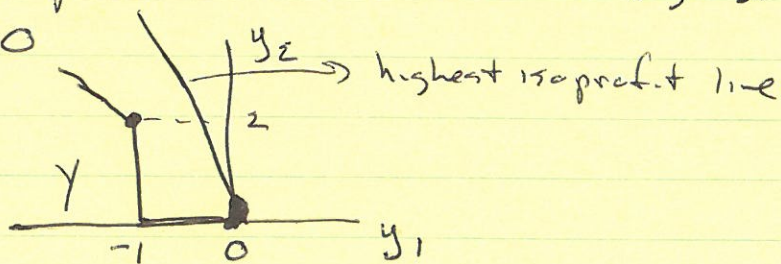 0
y₂ → highest isoprofit line
2
Y
-1 0 y₁